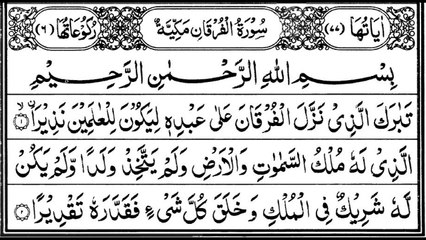 اٰيَاتُهَا (٧٧) سُوْرَةُ الْفُرْقَانِ مَكِّيَّةٌ رُكُوْعَاتُهَا (٦)
بِسْمِ اللهِ الرَّحْمٰنِ الرَّحِيْمِ
تَبٰرَكَ الَّذِىْ نَزَّلَ الْفُرْقَانَ عَلٰى عَبْدِهٖ لِيَكُوْنَ لِلْعٰلَمِيْنَ نَذِيْرًا ۙ﴿١﴾
الَّذِىْ لَهٗ مُلْكُ السَّمٰوٰتِ وَالْاَرْضِ وَلَمْ يَتَّخِذْ وَلَدًا وَّلَمْ يَكُنْ
لَّهٗ شَرِيْكٌ فِى الْمُلْكِ وَخَلَقَ كُلَّ شَىْءٍ فَقَدَّرَهٗ تَقْدِيْرًا ﴿٢﴾